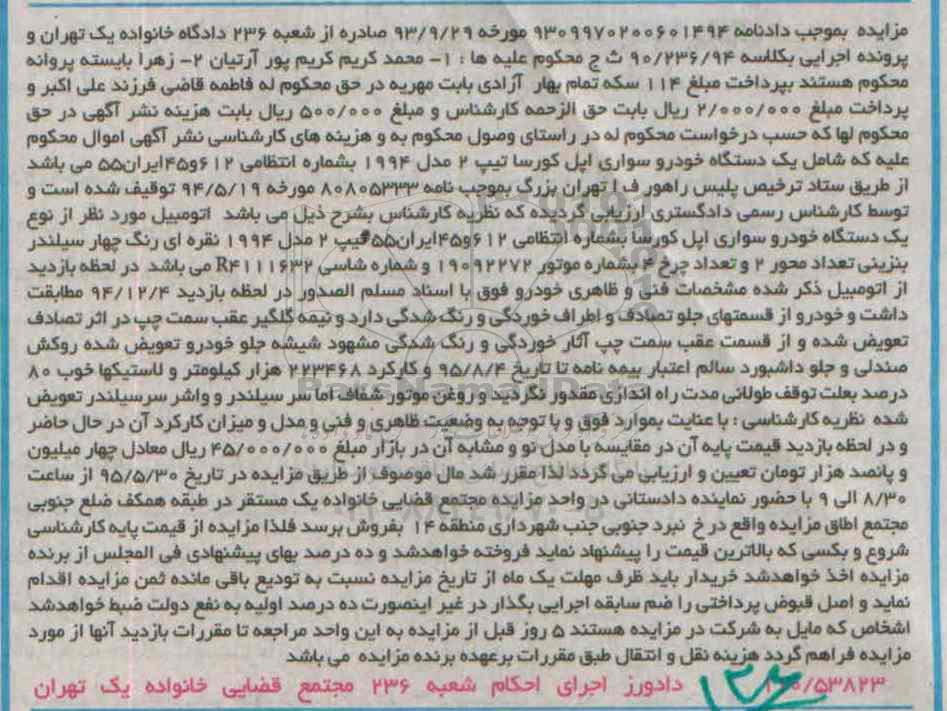 مزایده بموجب دادنامه ۹۳۰۹۹۷۰۲۰۰۶۰۱۴۹۴ مورخه ۹۳/۹/۲۹ صادره از شعبه ۲۳۶ دادگاه خانواده یک تهران و
پرونده اجرایی بکلاسه ۹۰/۲۳۶/۹۴ ث ج محکوم علیه ها : ۱- محمد کریم کریم پور آرتیان ۲- زهرا بایسته پروانه
محکوم هستند بپرداخت مبلغ ۱۱۴ سکه تمام بهار آزادی بابت مهریه در حق محکوم له فاطمه قاضی فرزند علی اکبر و
پرداخت مبلغ ۲/۰۰۰/۰۰۰ ریال بابت حق الزحمه کارشناس و مبلغ ۵۰۰/۰۰۰ ریال بابت هزینه نشر آگهی در حق
محکوم لها که حسب درخواست محکوم له در راستای وصول محکوم به و هزینه های کارشناسی نشر آگهی اموال محکوم
علیه که شامل یک دستگاه خودرو سواری اپل کورسا تیپ ۲ مدل ۱۹۹۴ بشماره انتظامی ۶۱۲و۴۵ایران۵۵ می باشد
از طریق ستاد ترخیص پلیس راهور ف ا تهران بزرگ بموجب نامه ۸۰۸۰۵۳۳۳ مورخه ۹۴/۵/۱۹ توقیف شده است و
توسط کارشناس رسمی دادگستری ارزیابی گردیده که نظریه کارشناس بشرح ذیل می باشد اتومبیل مورد نظر از نوع
یک دستگاه خودرو سواری اپل کورسا بشماره انتظامی ۶۱۲و۴۵ایران۵۵ تیپ ۲ مدل ۱۹۹۴ نقره ای رنگ چهار سیلندر
بنزینی تعداد محور ۲ و تعداد چرخ ۴ بشماره موتور ۱۹۰۹۲۲۷۲ و شماره شاسی R۴۱۱۱۶۳۲ می باشد در لحظه بازدید
از اتومبیل ذکر شده مشخصات فنی و ظاهری خودرو فوق با اسناد مسلم الصدور در لحظه بازدید ۹۴/۱۲/۴ مطابقت
داشت و خودرو از قسمتهای جلو تصادف و اطراف خوردگی و رنگ شدگی دارد و نیمه گلگیر عقب سمت چپ در اثر تصادف
تعویض شده و از قسمت عقب سمت چپ آثار خوردگی و رنگ شدگی مشهود شیشه جلو خودرو تعویض شده روکش
صندلی و جلو داشبورد سالم اعتبار بیمه نامه تا تاریخ ۹۵/۸/۴ و کارکرد ۲۲۳۴۶۸ هزار کیلومتر و لاستیکها خوب ۸۰
درصد بعلت توقف طولانی مدت راه اندازی مقدور نگردید و روغن موتور شفاف اما سر سیلندر و واشر سرسیلندر تعویض
شده نظریه کارشناسی : با عنایت بموارد فوق و با توجه به وضعیت ظاهری و فنی و مدل و میزان کارکرد آن در حال حاضر
و در لحظه بازدید قیمت پایه آن در مقایسه با مدل نو و مشابه آن در بازار مبلغ ۴۵/۰۰۰/۰۰۰ ریال معادل چهار میلیون
و پانصد هزار تومان تعیین و ارزیابی می گردد لذا مقرر شد مال موصوف از طریق مزایده در تاریخ ۹۵/۵/۳۰ از ساعت
۸/۳۰ الی ۹ با حضور نماینده دادستانی در واحد مزایده مجتمع قضایی خانواده یک مستقر در طبقه همکف ضلع جنوبی
مجتمع اطاق مزایده واقع در خ نبرد جنوبی جنب شهرداری منطقه ۱۴ بفروش برسد فلذا مزایده از قیمت پایه کارشناسی
شروع و بکسی که بالاترین قیمت را پیشنهاد نماید فروخته خواهدشد و ده درصد بهای پیشنهادی فی المجلس از برنده
مزایده اخذ خواهدشد خریدار باید ظرف مهلت یک ماه از تاریخ مزایده نسبت به تودیع باقی مانده ثمن مزایده اقدام
نماید و اصل قبوض پرداختی را ضم سابقه اجرایی بگذار در غیر اینصورت ده درصد اولیه به نفع دولت ضبط خواهدشد
اشخاص که مایل به شرکت در مزایده هستند ۵ روز قبل از مزایده به این واحد مراجعه تا مقررات بازدید آنها از مورد
مزایده فراهم گردد هزینه نقل و انتقال طبق مقررات برعهده برنده مزایده می باشد
/۵۳۸۲۳ دادورز اجرای احکام شعبه ۲۳۶ مجتمع قضایی خانواده یک تهران
ParsNamadData